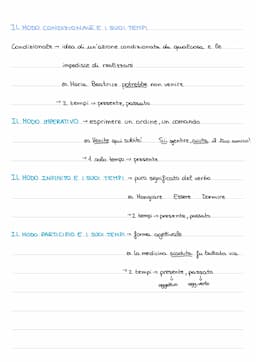 IL MODO CONDIZIONALE E I SUOI TEMPI
Condizionale → idea di un'azione condizionata da qualcosa e le
impedisce di realizzarsi
es. Maria Beatrice potrebbe non venire
→ 2 tempi → presente, passato
IL MODO IMPERATIVO → esprimere un ordine, un comando
es. Venite qui subito!
→ 1 solo tempo → presente
IL MODO INFINITO E I SUOI TEMPI → puro significato del verbo
es. Mangiare Essere Dormire
→ 2 tempi → presente, passato
IL MODO PARTICIPIO E I SUOI TEMPI → forma aggettivale
es. la medicina scaduta fu buttata via
→ 2 tempi → presente, passato
aggettivo agg. verbo